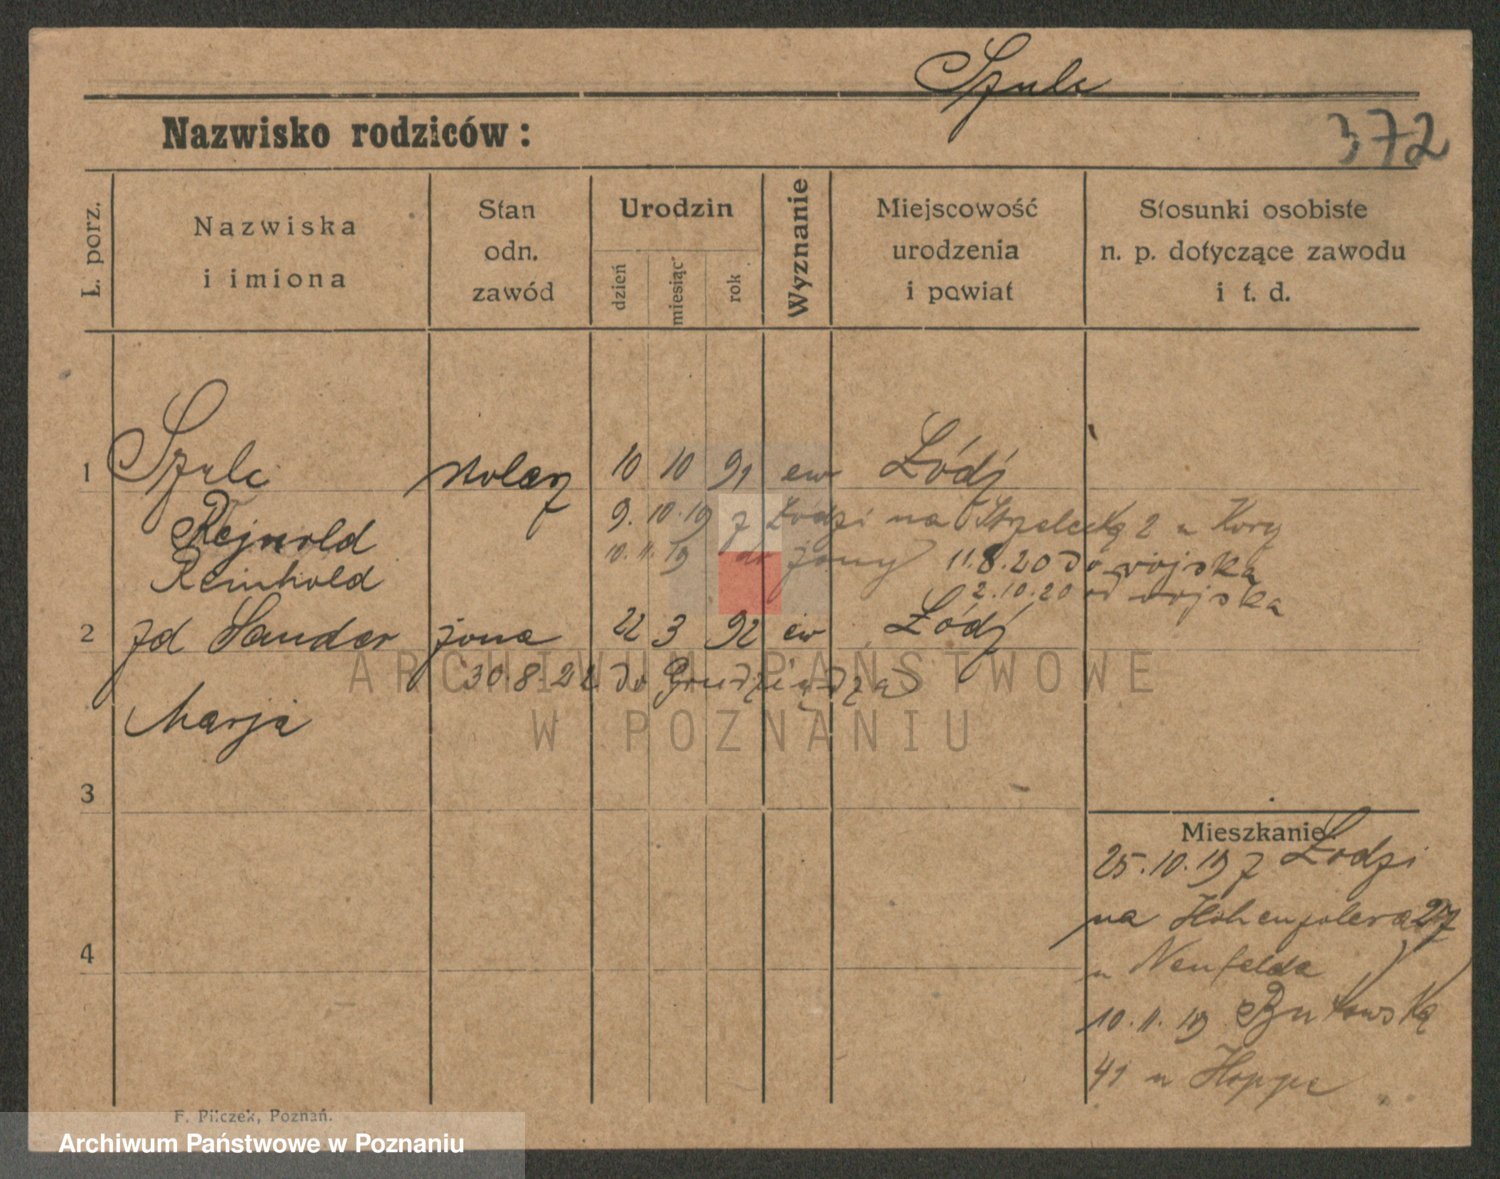 Szulc
Nazwisko rodziców:
372
L. porz.
Nazwiska
i imiona
Stan
odn.
zawód
Urodzin
dzień
miesiąc
rok
Wyznanie
Miejscowość
urodzenia
i powiat
Stosunki osobiste
n. p. dotyczące zawodu
i t. d.
1 Szulc stolarz 10 10 91 ew Łódź
Rejnold 9.10.19 z Łodzi na Strzelecką 2 u Kory
Reinhold 10.11.19 do żony 11.8.20 do wojska
2.10.20 od wojska
2 zd Sander żona 22 3 92 ew Łódź
30.8.21 do Grudziądza
Marja
3
Mieszkanie:
25.10.19 z Łodzi
na Hohenzolerna 27
u Neufelda
4
10.11.19 Bukowską
41 u Hoppe
F. Pilczek, Poznań.
ARCHIWUM PAŃSTWOWE
W POZNANIU
Archiwum Państwowe w Poznaniu